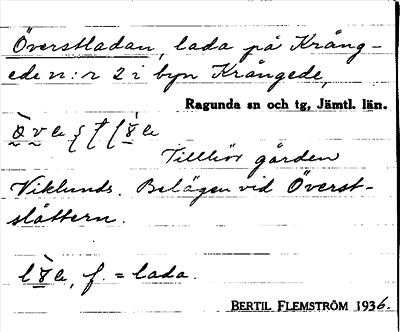 Överstladan, lada på Krång-
ede n:r 2 i byn Krångede,
Ragunda sn och tg, Jämtl. län.
Tillhör gården
Viklunds. Belägen vid Överst-
slåttern.
f. = lada.
BERTIL FLEMSTRÖM 1936.